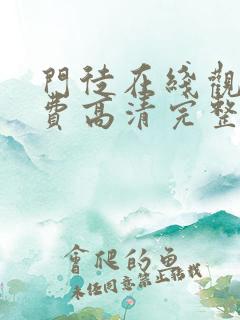 門徒在綫觀
費高清完整
會爬的魚
未经同意禁止转载